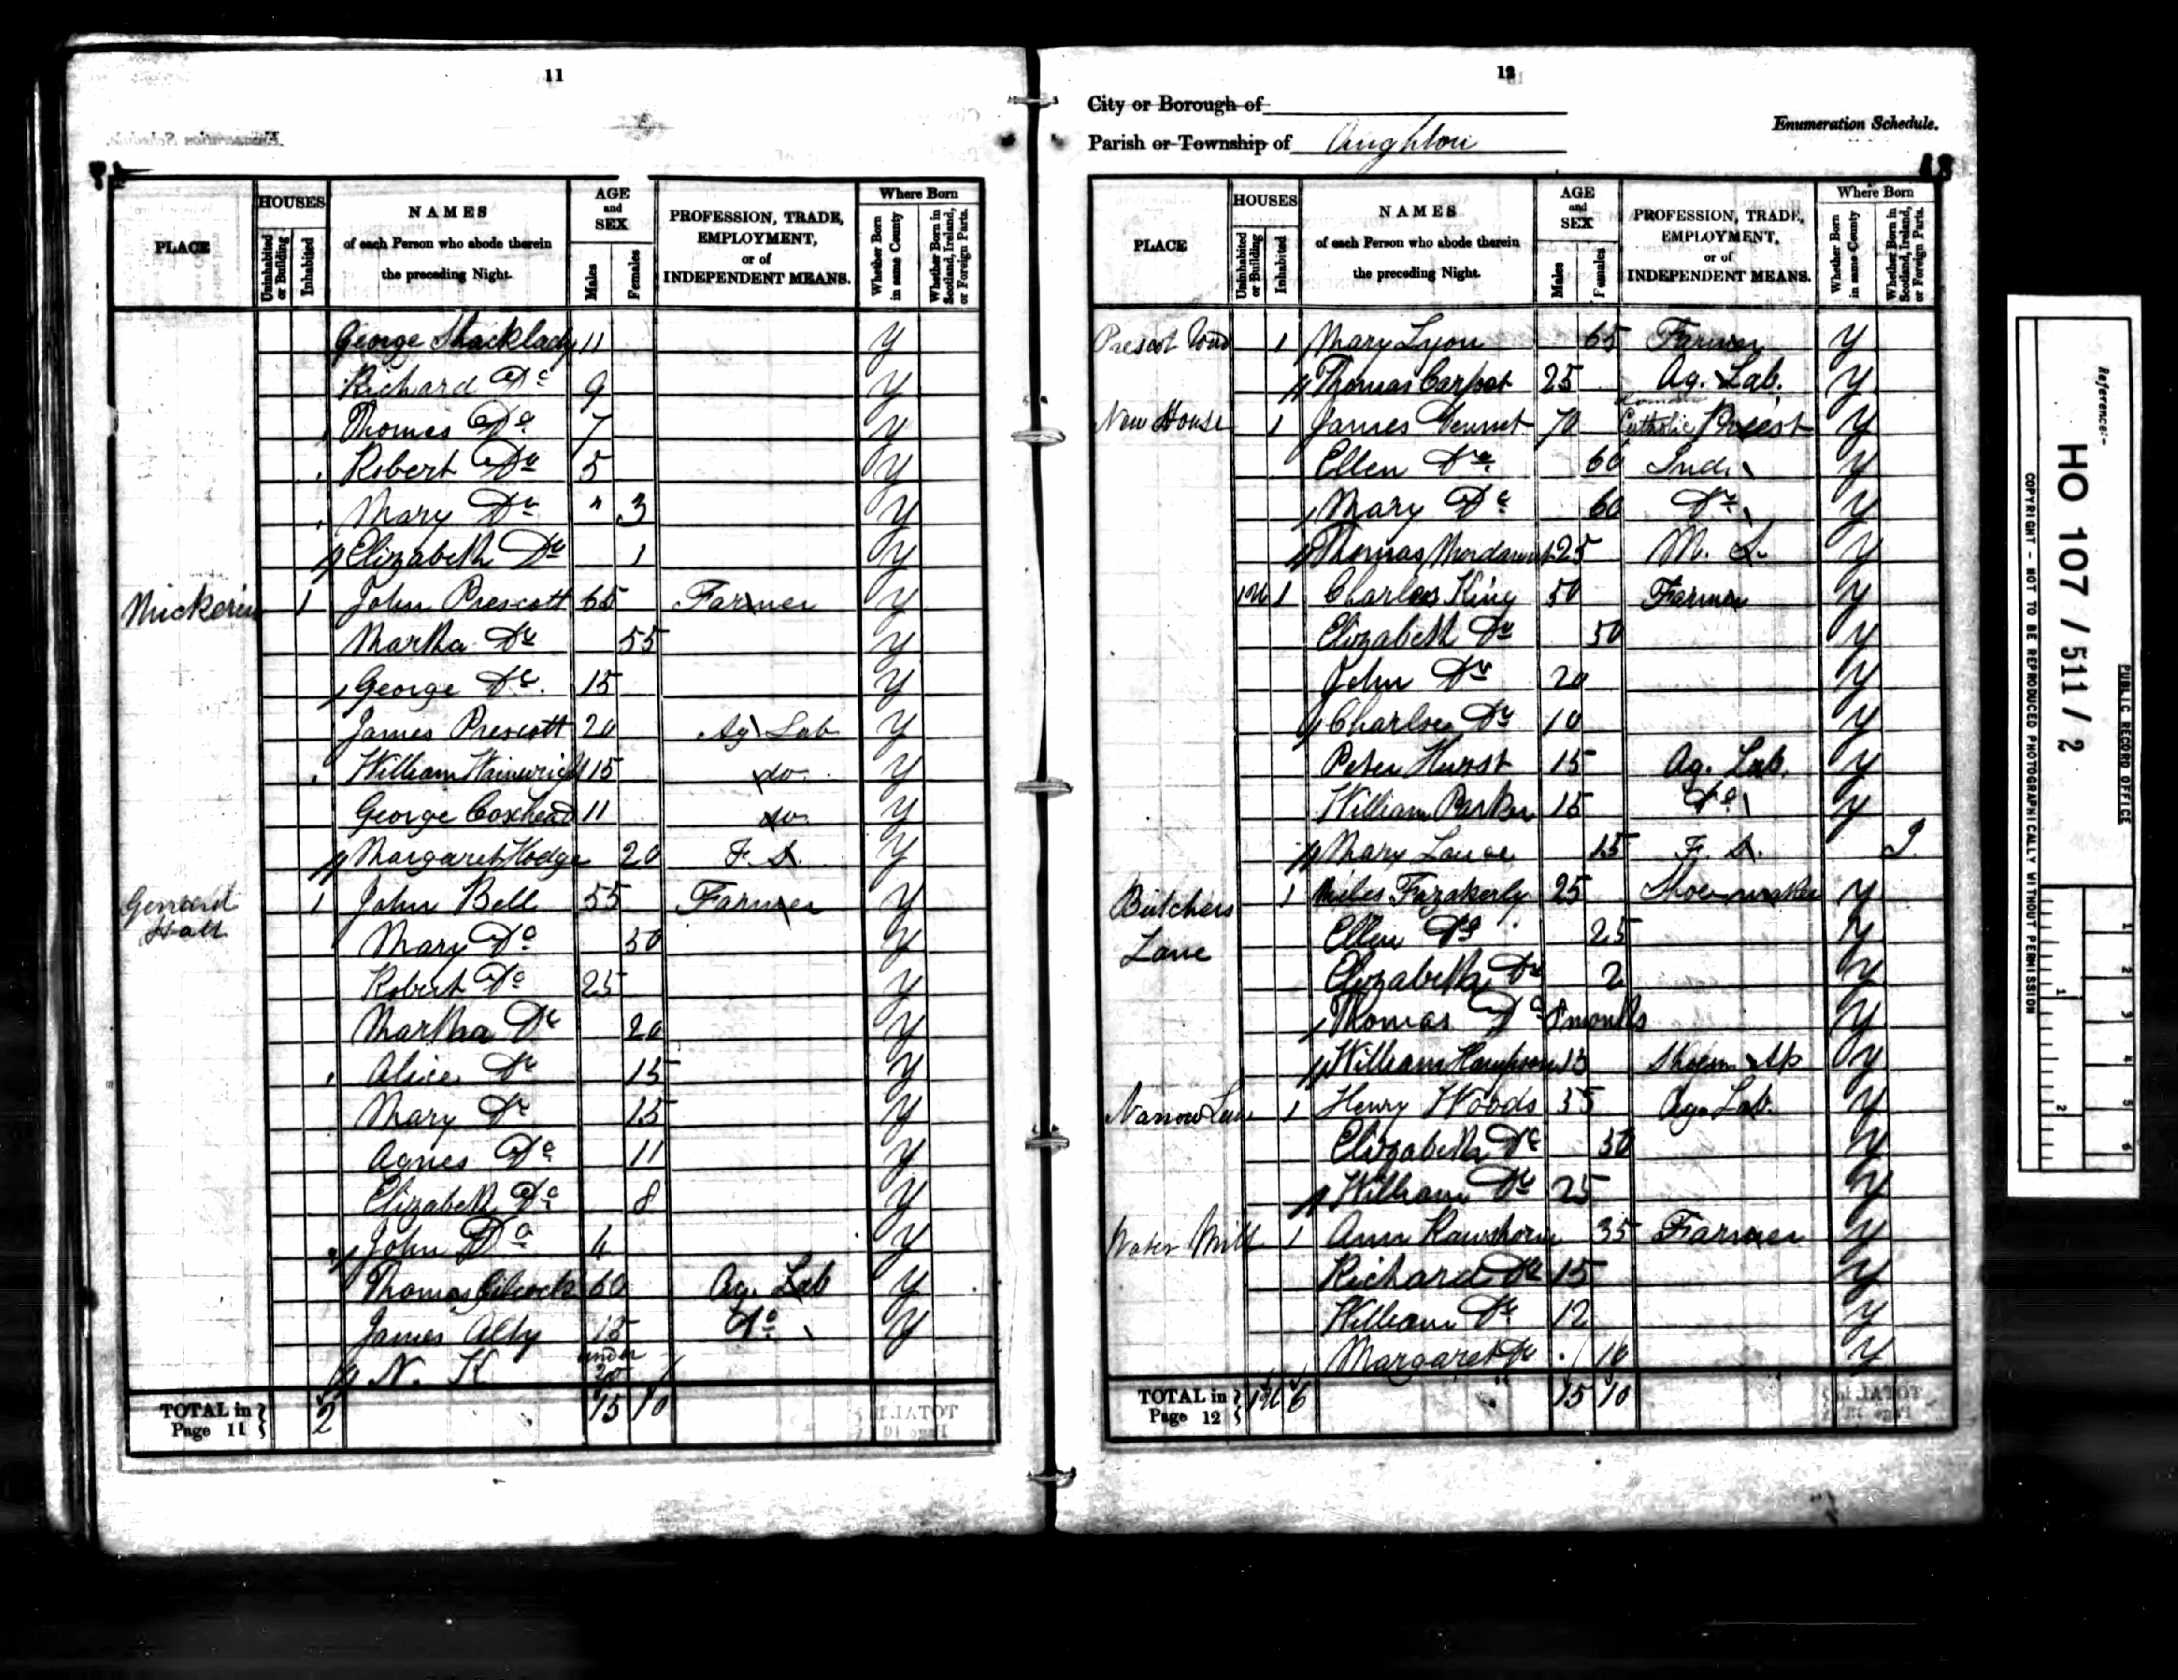 11
HOUSES
AGE and SEX
Where Born
PLACE
Uninhabited or Building
Inhabited
NAMES of each Person who abode therein the preceding Night.
Males
Females
PROFESSION, TRADE, EMPLOYMENT, or of INDEPENDENT MEANS.
Whether Born in same County
Whether Born in Scotland, Ireland, or Foreign Parts.
George Shacklady 11 Y
Richard Do 9 Y
Thomas Do 7 Y
Robert Do 5 Y
Mary Do " 3 Y
Elizabeth Do 1 Y
1 John Prescott 65 Farmer Y
Martha Do 55 Y
George Do 15 Y
James Prescott 20 Ag Lab Y
William Wainwright 15 do. Y
George Coxhead 11 do. Y
Margaret Hodge 20 F. S. Y
Gerrard Hall 1 John Bell 55 Farmer Y
Mary Do 50 Y
Robert Do 25 Y
Martha Do 20 Y
Alice Do 15 Y
Mary Do 15 Y
Agnes Do 11 Y
Elizabeth Do 8 Y
John Do 4 Y
Thomas 60 Ag. Lab Y
James Alty 15 Do Y
N. K under 20
TOTAL in Page 11 } 2 15 10
12
City or Borough of
Parish or Township of Aughton
Enumeration Schedule.
HOUSES
AGE and SEX
Where Born
PLACE
Uninhabited or Building
Inhabited
NAMES of each Person who abode therein the preceding Night.
Males
Females
PROFESSION, TRADE, EMPLOYMENT, or of INDEPENDENT MEANS.
Whether Born in same County
Whether Born in Scotland, Ireland, or Foreign Parts.
Prescot Road 1 Mary Lyon 65 Farmer Y
Thomas 25 Ag. Lab. Y
New House 1 James 70 Roman Catholic Priest Y
Ellen Do 60 Ind. Y
Mary Do 60 Do Y
Thomas 25 M. S. Y
1 U 1 Charles King 50 Farmer Y
Elizabeth Do 50 Y
John Do 20 Y
Charles Do 10 Y
Peter Hurst 15 Ag. Lab. Y
William Parker 15 Do Y
Mary 25 F. S. I.
Butchers Lane 1 Miles Fazakerly 25 Shoemaker Y
Ellen Do 25 Y
Elizabeth Do 2 Y
Thomas Do 8 months Y
William 15 Shoem Ap Y
Narrow Lane 1 Henry Woods 35 Ag. Lab. Y
Elizabeth Do 30 Y
William Do 25 Y
Water Mill 1 Ann Rawsthorne 35 Farmer Y
Richard Do 15 Y
William Do 12 Y
Margaret Do 10 Y
TOTAL in Page 12 } 1 U 6 15 10
Reference:-
HO 107 / 511 / 2
PUBLIC RECORD OFFICE
COPYRIGHT - NOT TO BE REPRODUCED PHOTOGRAPHICALLY WITHOUT PERMISSION
1 2
1 2 3 4 5 6